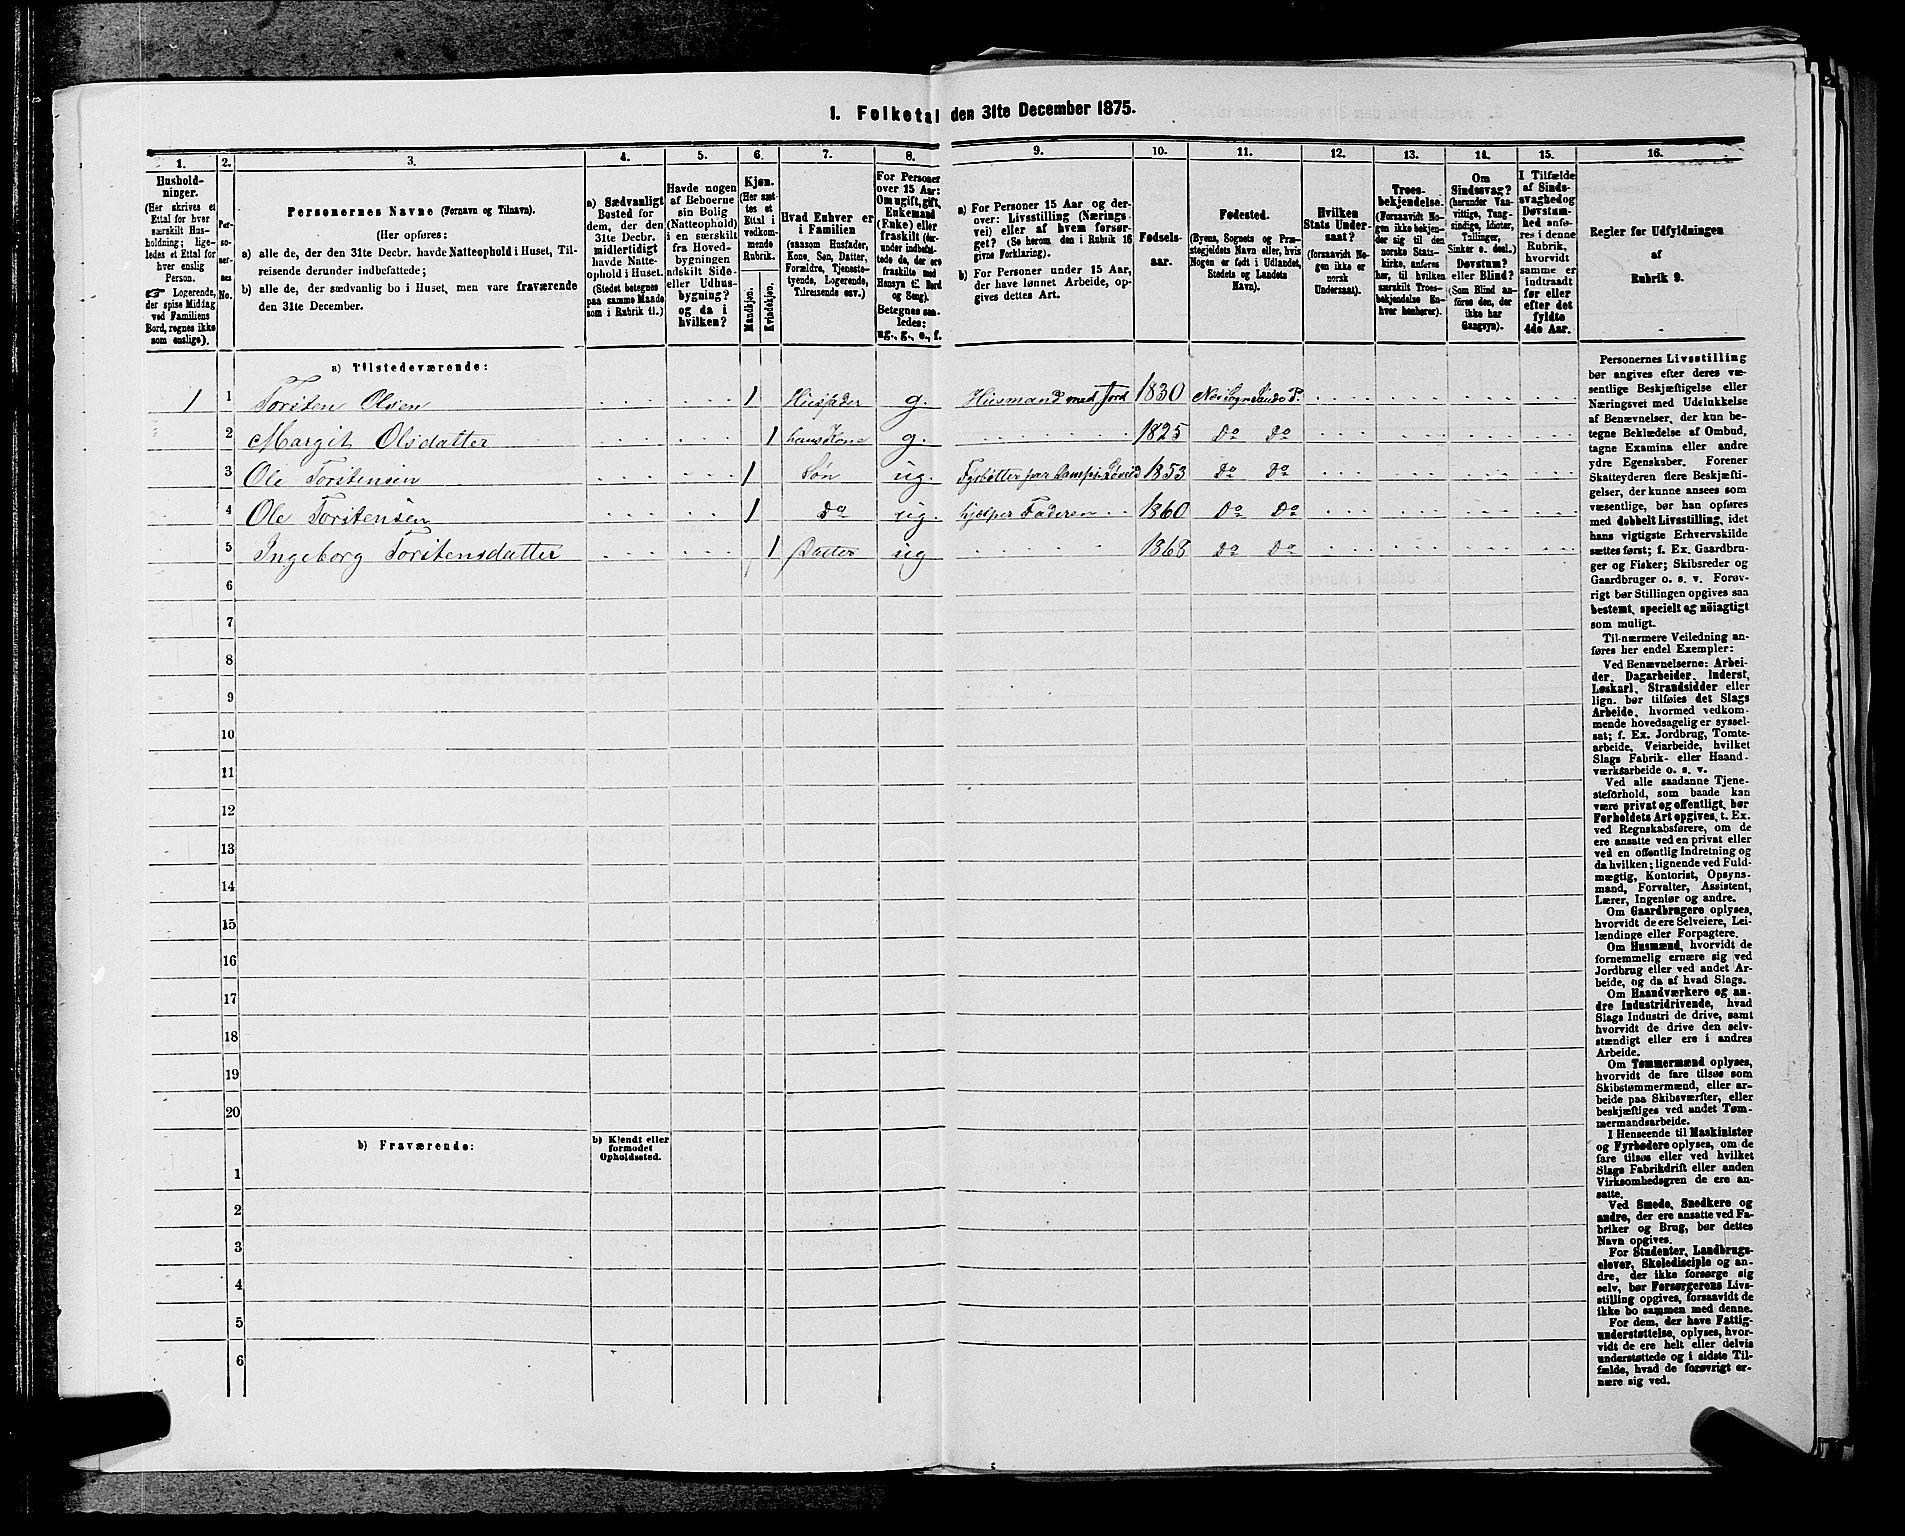 1. Folketal den 31te December 1875.
1. 2. 3. 4. 5. 6. 7. 8. 9. 10. 11. 12. 13. 14. 15. 16.
Hushold-
ninger.
(Her skrives et
Ettal for hver
særskilt Hus-
holdning; lige-
ledes et Ettal for
hver enslig
Person.
☞ Logerende,
der spise Middag
ved Familiens
Bord, regnes ikke
som enslige).
Per-
so-
ner-
nes
No.
Personernes Navne (Fornavn og Tilnavn).
(Her opføres:
a) alle de, der den 31te Decbr. havde Natteophold i Huset, Til-
reisende derunder indbefattede;
b) alle de, der sædvanlig bo i Huset, men vare fraværende
den 31te December.
a) Sædvanligt
Bosted for
dem, der den
31te Decbr.
midlertidigt
havde Natte-
ophold i Huset.
(Stedet betegnes
paa samme Maade
som i Rubrik 11.)
Havde nogen
af Beboerne
sin Bolig
(Natteophold)
i en særskilt
fra Hoved-
bygningen
adskilt Side-
eller Udhus-
bygning?
og da i
hvilken?
Kjøn.
(Her sæt-
tes et
Ettal i
vedkom-
mende
Rubrik.
Mandkjøn.
Kvindekjøn.
Hvad Enhver er
i Familien
(saasom Husfader,
Kone, Søn, Datter,
Forældre, Tjeneste-
tyende, Logerende,
Tilreisende osv.)
For Personer
over 15 Aar:
Om ugift, gift,
Enkemand
(Enke) eller
fraskilt (der-
under indbefat-
tede de, der ere
fraskilte med
Hensyn til Bord
og Seng).
Betegnes saa-
ledes:
ug., g., e., f.
a) For Personer 15 Aar og der-
over: Livsstilling (Nærings-
vei) eller af hvem forsør-
get? (Se herom den i Rubrik 16
givne Forklaring).
b) For Personer under 15 Aar,
der have lønnet Arbeide, op-
gives dettes Art.
Fødsels-
aar.
Fødested.
(Byens, Sognets og Præ-
stegjeldets Navn eller, hvis
Nogen er født i Udlandet,
Stedets og Landets
Navn).
Hvilken
Stats Under-
saat?
(forsaavidt No-
gen ikke er
norsk
Undersaat).
Troes-
bekjendelse.
(Forsaavidt No-
gen ikke bekjen-
der sig til den
norske Stats-
kirke, anføres
her, til hvilken
særskilt Troes-
bekjendelse En-
hver henhører).
Om
Sindssvag?
(herunder Van-
vittige, Tung-
sindige, Idioter,
Tullinger,
Sinker o. desl.)
Døvstum?
eller Blind?
(Som Blind an-
føres den, der
ikke har
Gangsyn).
I Tilfælde
af Sinds-
svaghed og
Døvstum-
hed anfø-
res i denne
Rubrik,
hvorvidt
samme er
indtraadt
før eller
efter det
fyldte
4de Aar.
Regler for Udfyldningen
af
Rubrik 9.
a) Tilstedeværende:
1 1 Torsten Olsen 1 Husfader g. Husmand med Jord 1830
2 Margit Olsdatter 1 hans Kone g. 1825 Do Do
3 Ole Torstensen 1 Søn ug. 1853 Do Do
4 Ole Torstensen 1 Do ug. hjælper Faderen 1860 Do Do
5 Ingeborg Torstensdatter 1 Datter ug 1868 Do Do
6
7
8
9
10
11
12
13
14
15
16
17
18
19
20
b) Fraværende:
b) Kjendt eller
formodet
Opholdssted.
1
2
3
4
5
6
Personernes Livsstilling
bør angives efter deres væ-
sentlige Beskjæftigelse eller
Næringsvei med Udelukkelse
af Benævnelser, der kun be-
tegne Beklædelse af Ombud,
tagne Examina eller andre
ydre Egenskaber. Forener
Skatteyderen flere Beskjæfti-
gelser, der kunne ansees som
væsentlige, bør han opføres
med dobbelt Livsstilling, idet
hans vigtigste Erhvervskilde
sættes først; f. Ex. Gaardbru-
ger og Fisker; Skibsreder og
Gaardbruger o. s. v. Forøv-
rigt bør Stillingen opgives saa
bestemt, specielt og nöiagtigt
som muligt.
Til nærmere Veiledning an-
føres her endel Exempler:
Ved Benævnelserne: Arbei-
der, Dagarbeider, Inderst,
Løskarl, Strandsidder eller
lign. bør tilføies det Slags
Arbeide, hvormed vedkom-
mende hovedsagelig er syssel-
sat; f. Ex. Jordbrug, Tomte-
arbeide, Veiarbeide, hvilket
Slags Fabrik- eller Haand-
værksarbeide o. s. v.
Ved alle saadanne Tjene-
steforhold, som baade kan
være privat og offentligt, bør
Forholdets Art opgives, t. Ex.
ved Regnskabsførere, om de
ere ansatte ved en privat eller
ved en offentlig Indretning og
da hvilken; lignende ved Fuld-
mægtig, Kontorist, Opsyns-
mand, Forvalter, Assistent,
Lærer, Ingeniør og andre.
Om Gaardbrugere oplyses,
hvorvidt de ere Selveiere, Lei-
lændinge eller Forpagtere.
Om Husmænd, hvorvidt de
fornemmelig ernære sig ved
Jordbrug eller ved andet Ar-
beide, og da af hvad Slags.
Om Haandværkere og an-
dre Industridrivende, hvad
Slags Industri de drive, samt
hvorvidt de drive den selv-
stændigt eller ere i andres
Arbeide.
Om Tømmermænd oplyses,
hvorvidt de fare tilsøs som
Skibstømmermænd, eller ar-
beide paa Skibsværfter, eller
beskjæftiges ved andet Tøm-
mermandsarbeide.
I Henseende til Maskinister
og Fyrbødere oplyses, om de
fare tilsøs eller ved hvilket
Slags Fabrikdrift eller anden
Virksomhedsgren de ere an-
satte.
Ved Smede, Snedkere og
andre, der ere ansatte ved Fa-
briker og Brug, bør dettes
Navn opgives.
For Studenter, Landbrugs-
elever, Skoledisciple og an-
dre, der ikke forsørge sig
selv, bør Forsørgerens Livs-
stilling opgives, forsaavidt de
ikke bo sammen med denne.
For dem, der have Fattig-
understøttelse, oplyses, hvor-
vidt de ere helt eller delvis
understøttede og i sidste Til-
fælde, hvad de forøvrigt er-
nære sig ved.